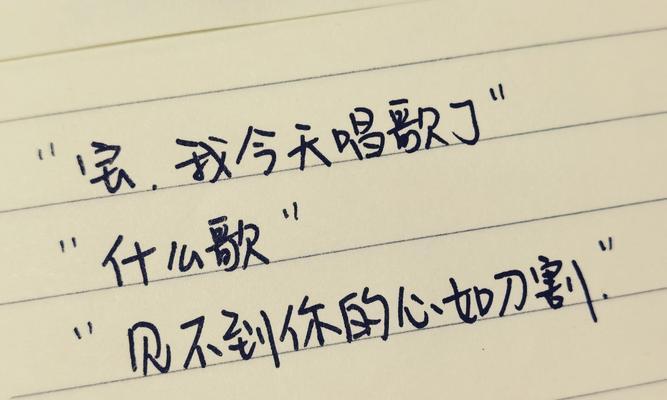 "宝.我今天唱歌了"
"什么歌"
"见不到你的心如刀割."